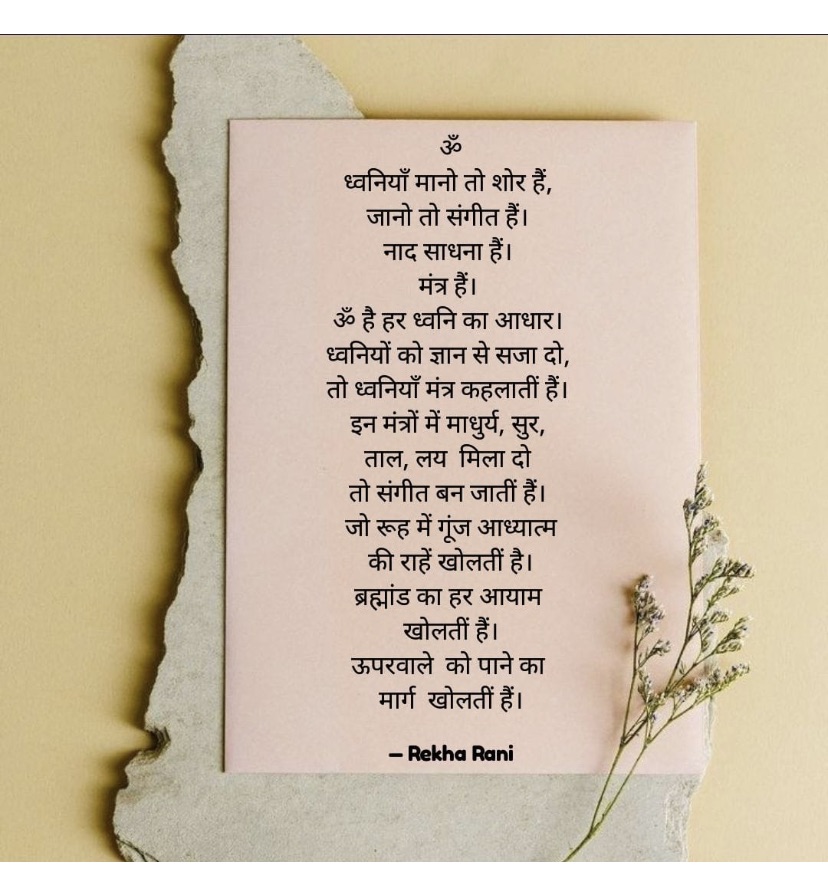 ॐ
ध्वनियाँ मानो तो शोर हैं,
जानो तो संगीत हैं।
नाद साधना हैं।
मंत्र हैं।
ॐ है हर ध्वनि का आधार।
ध्वनियों को ज्ञान से सजा दो,
तो ध्वनियाँ मंत्र कहलातीं हैं।
इन मंत्रों में माधुर्य, सुर,
ताल, लय  मिला दो
तो संगीत बन जातीं हैं।
जो रूह में गूंज आध्यात्म
की राहें खोलतीं है।
ब्रह्मांड का हर आयाम
खोलतीं हैं।
ऊपरवाले  को पाने का
मार्ग  खोलतीं हैं।
– Rekha Rani